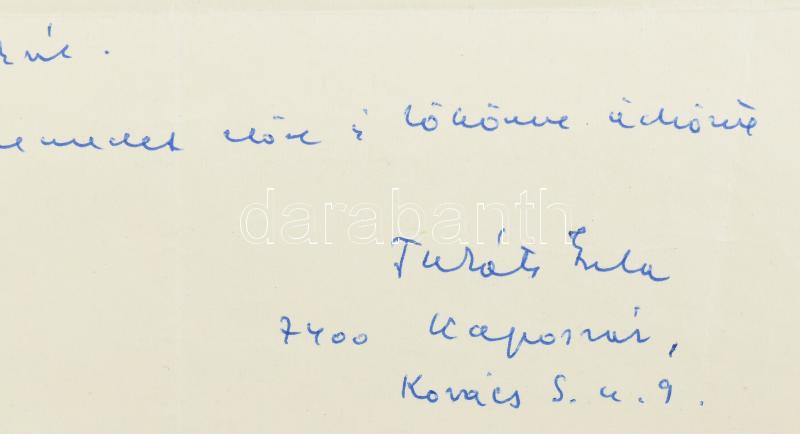 előre is köszönve üdvözli
darabanth
Takáts Gyula
7400 Kaposvár,
Kovács S. u. 9.